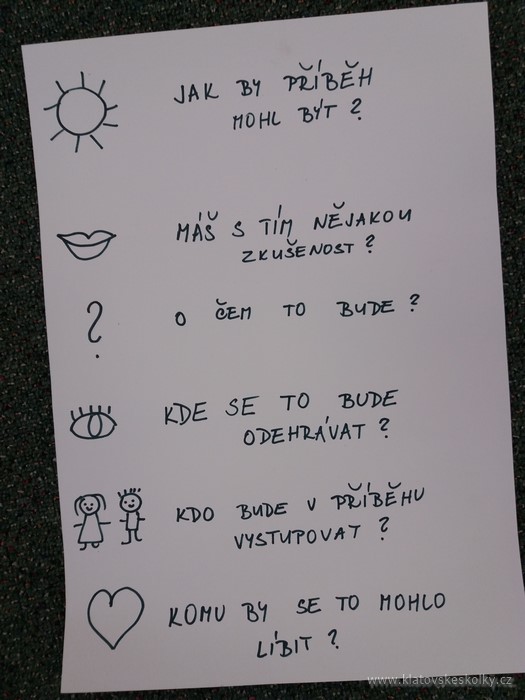 JAK BY PŘÍBĚH
MOHL BÝT ?
MÁŠ S TÍM NĚJAKOU
ZKUŠENOST ?
?
O ČEM TO BUDE ?
KDE SE TO BUDE
ODEHRÁVAT ?
KDO BUDE V PŘÍBĚHU
VYSTUPOVAT ?
KOMU BY SE TO MOHLO
LÍBIT ?
www.klatovskeskolky.cz